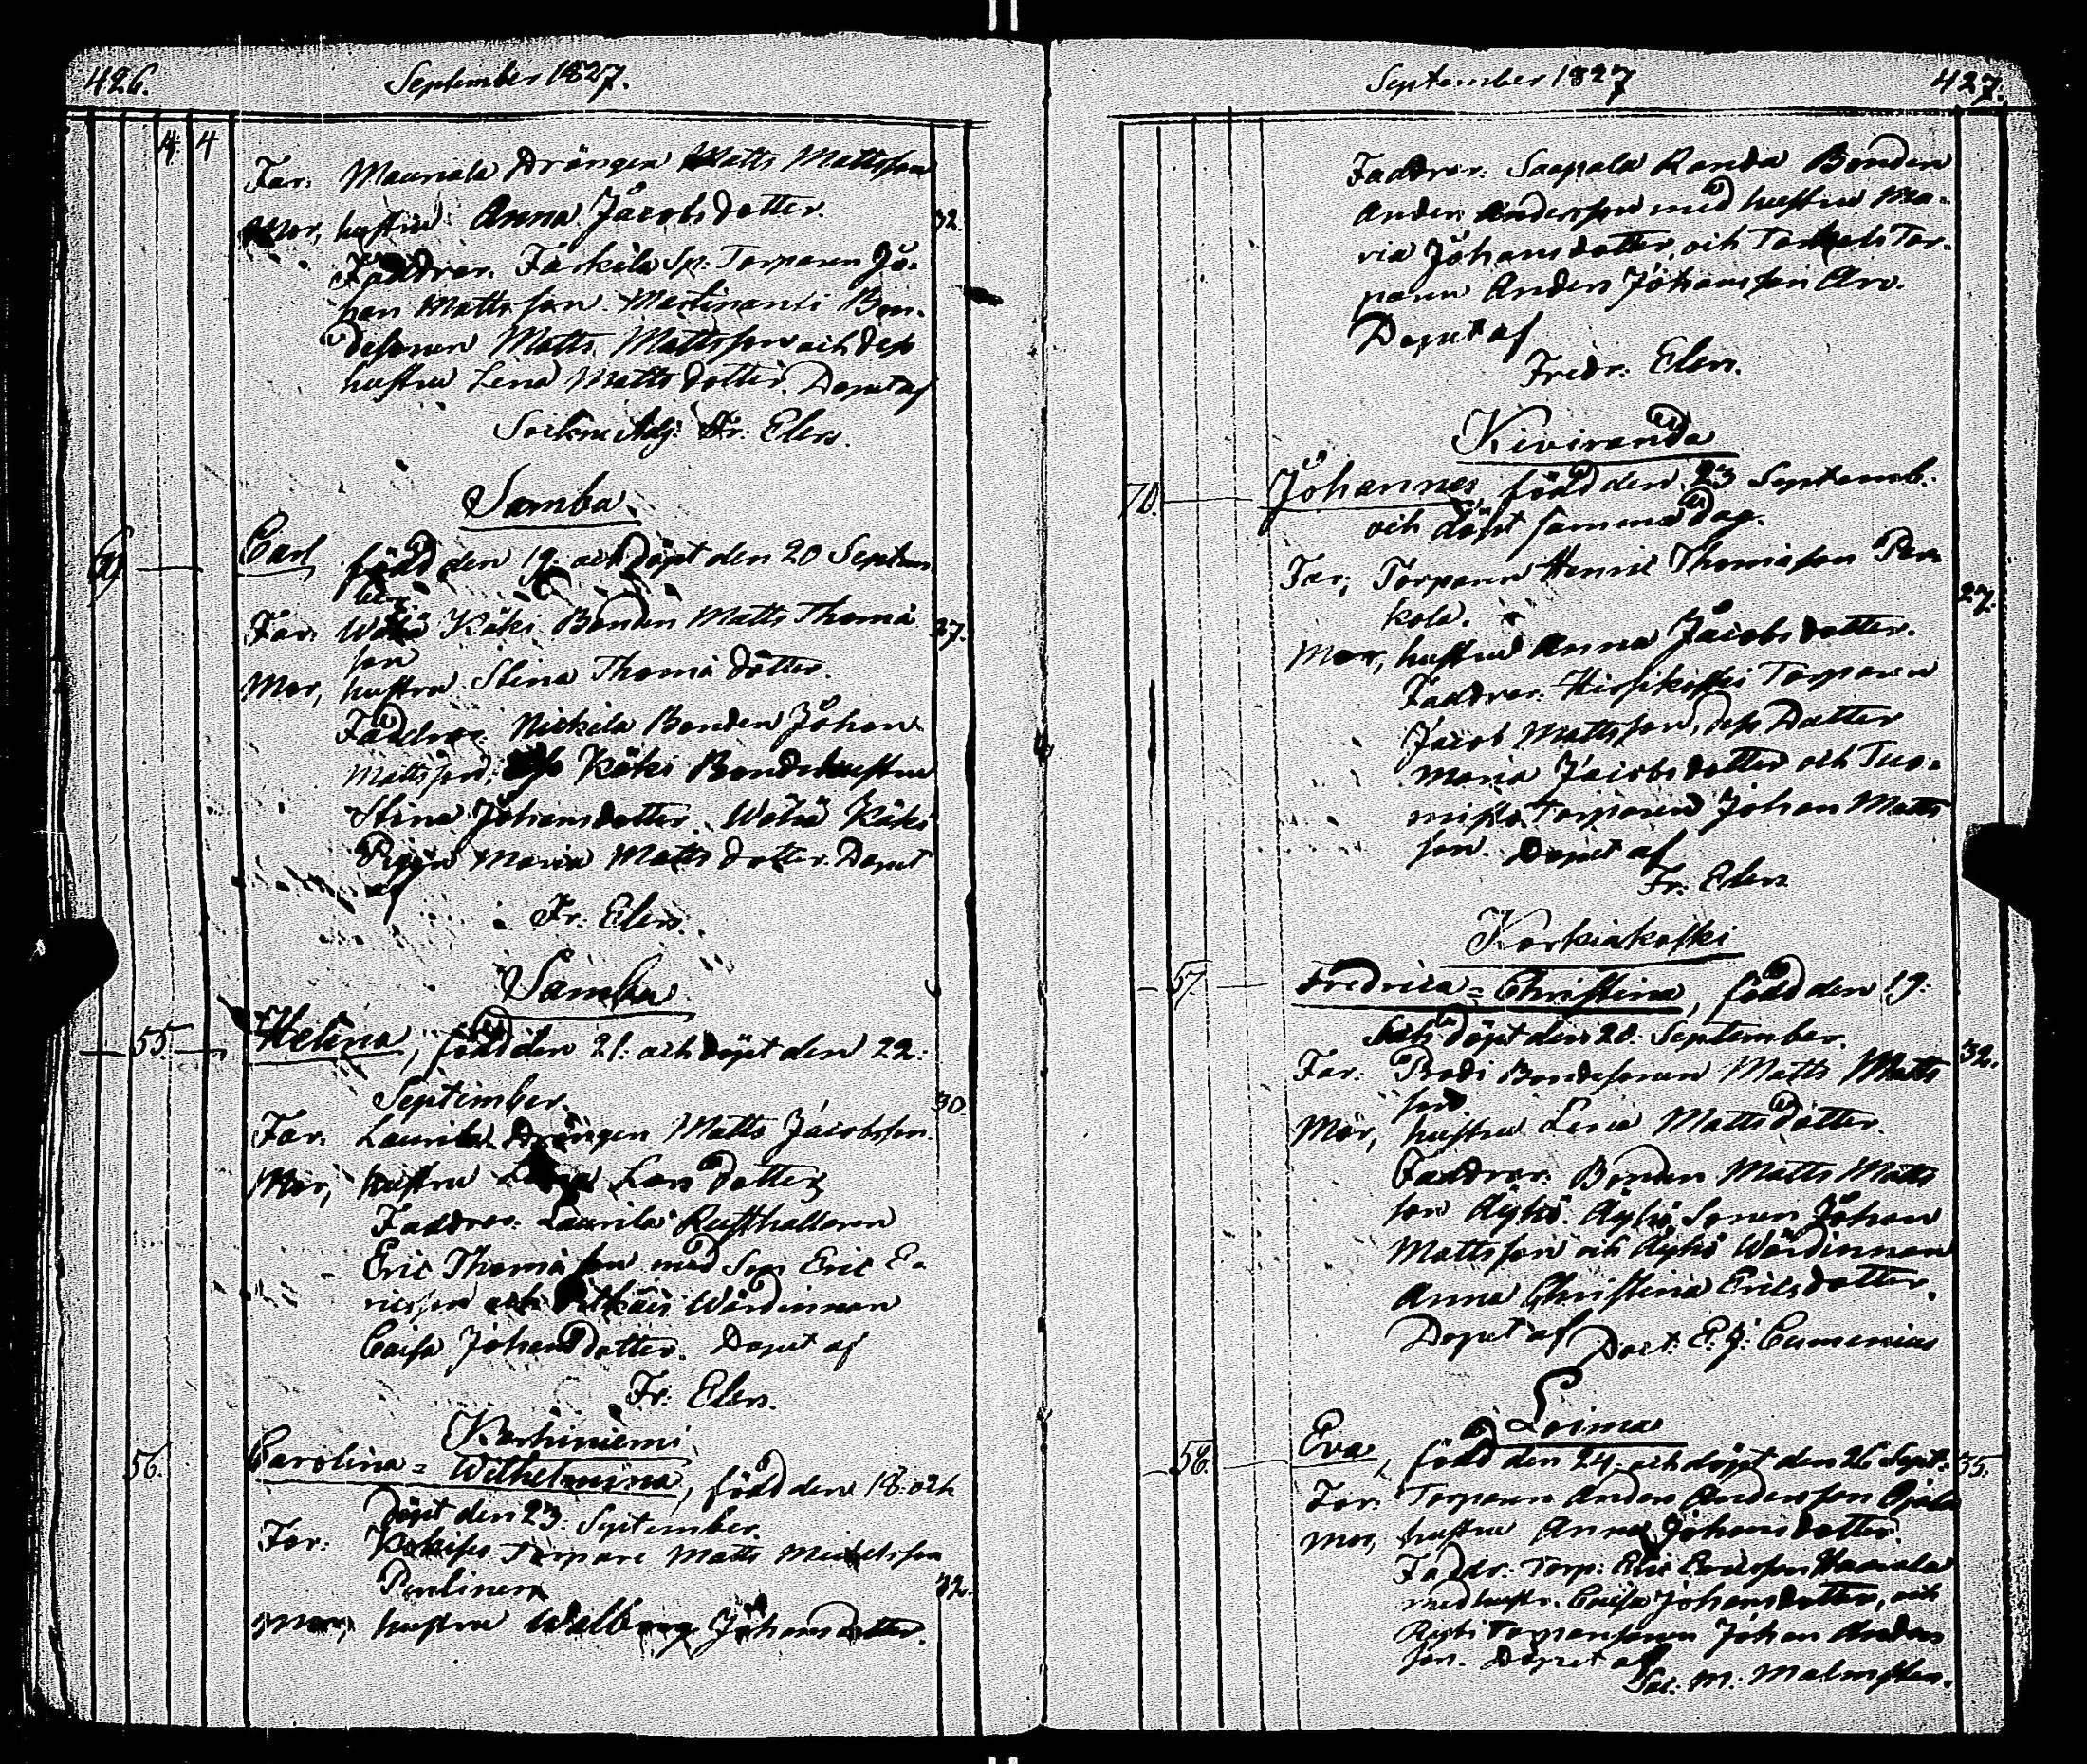 426. September 1827.
4 4
Far. Mauriala Drängen Matts Mattsson
Mor, hustru Anna Jacobsdotter. 32.
Faddrar. Torparen Jo-
han Mattsson. Martinanti Bon-
desonen Matts Mattsson och dess
hustru Lena Mattsdotter. Döpet af
Sockne Adj: Fr: Elers.
Samba
69 Carl född den 19. och döpt den 20 Septem
ber
Far. Käki Bonden Matts Thomä 37.
son
Mor, hustru Stina Thomädotter.
Faddrar. Nickila Bonden Johan
Mattsson. Käki Bondehustru
Stina Johansdotter. Käki
Pigan Maria Mattsdotter. Döpet
af
Fr: Elers.
Samba
55. Helena, född den 21. och döpt den 22.
September. 30
Far. Laurila Drängen Matts Jacobsson.
Mor, hustru Larsdotter
Faddrar. Laurila Rusthållaren
Eric Thomäson med Son Eric E-
ricsson och Wärdinnan
Caisa Johansdotter. Döpet af
Fr: Elers.
Karhiniemi
56. Carolina=Wilhelmina, född den 18. och
döpt den 23. September.
Far. Torpare Matts Michelsson
32.
Mor, hustru Walborg Johansdotter.
September 1827 427.
Faddrar. Saapala Randa Bonden
Anders Andersson med hustru Ma-
ria Johansdotter, och Tor-
paren Anders Johansson
Döpet af
Fredr: Elers.
Kiviranda
70. Johannes, född den 23 Septemb.
och döpt samma dag.
Far, Torparen Henric Thomäson Pen
kola. 27.
Mor, hustru Anna Jacobsdotter.
Faddrar. Torparen
Jacob Mattsson, dess Dotter
Maria Jacobsdotter och Tuo-
Torparen Johan Matts
son. Döpet af
Fr: Elers
Korkiakoski
57. Fredrica=Christina, född den 19.
och döpt den 20. September.
Far. Prodi Bondesonen Matts Matts 32.
son
Mor, hustru Lena Mattsdotter.
Faddrar. Bonden Matts Matts
son Äyhö. Äyhö Sonen Johan
Mattsson och Äyhö Wärdinnan
Anna Christina Ericsdotter.
Döpet af Doct: E. J: Cumenius
Loima
58. Eva, född den 24. och döpt den 26 Sept: 35.
Far. Torparen Anders Andersson Ojala
Mor, hustru Anna Johansdotter.
Faddr: Torp: Eric Ericsson
med hustr. Caisa Johansdotter, och
Torparesonen Johan Anders
son. Döpet af
Sac: M: Malmsten.